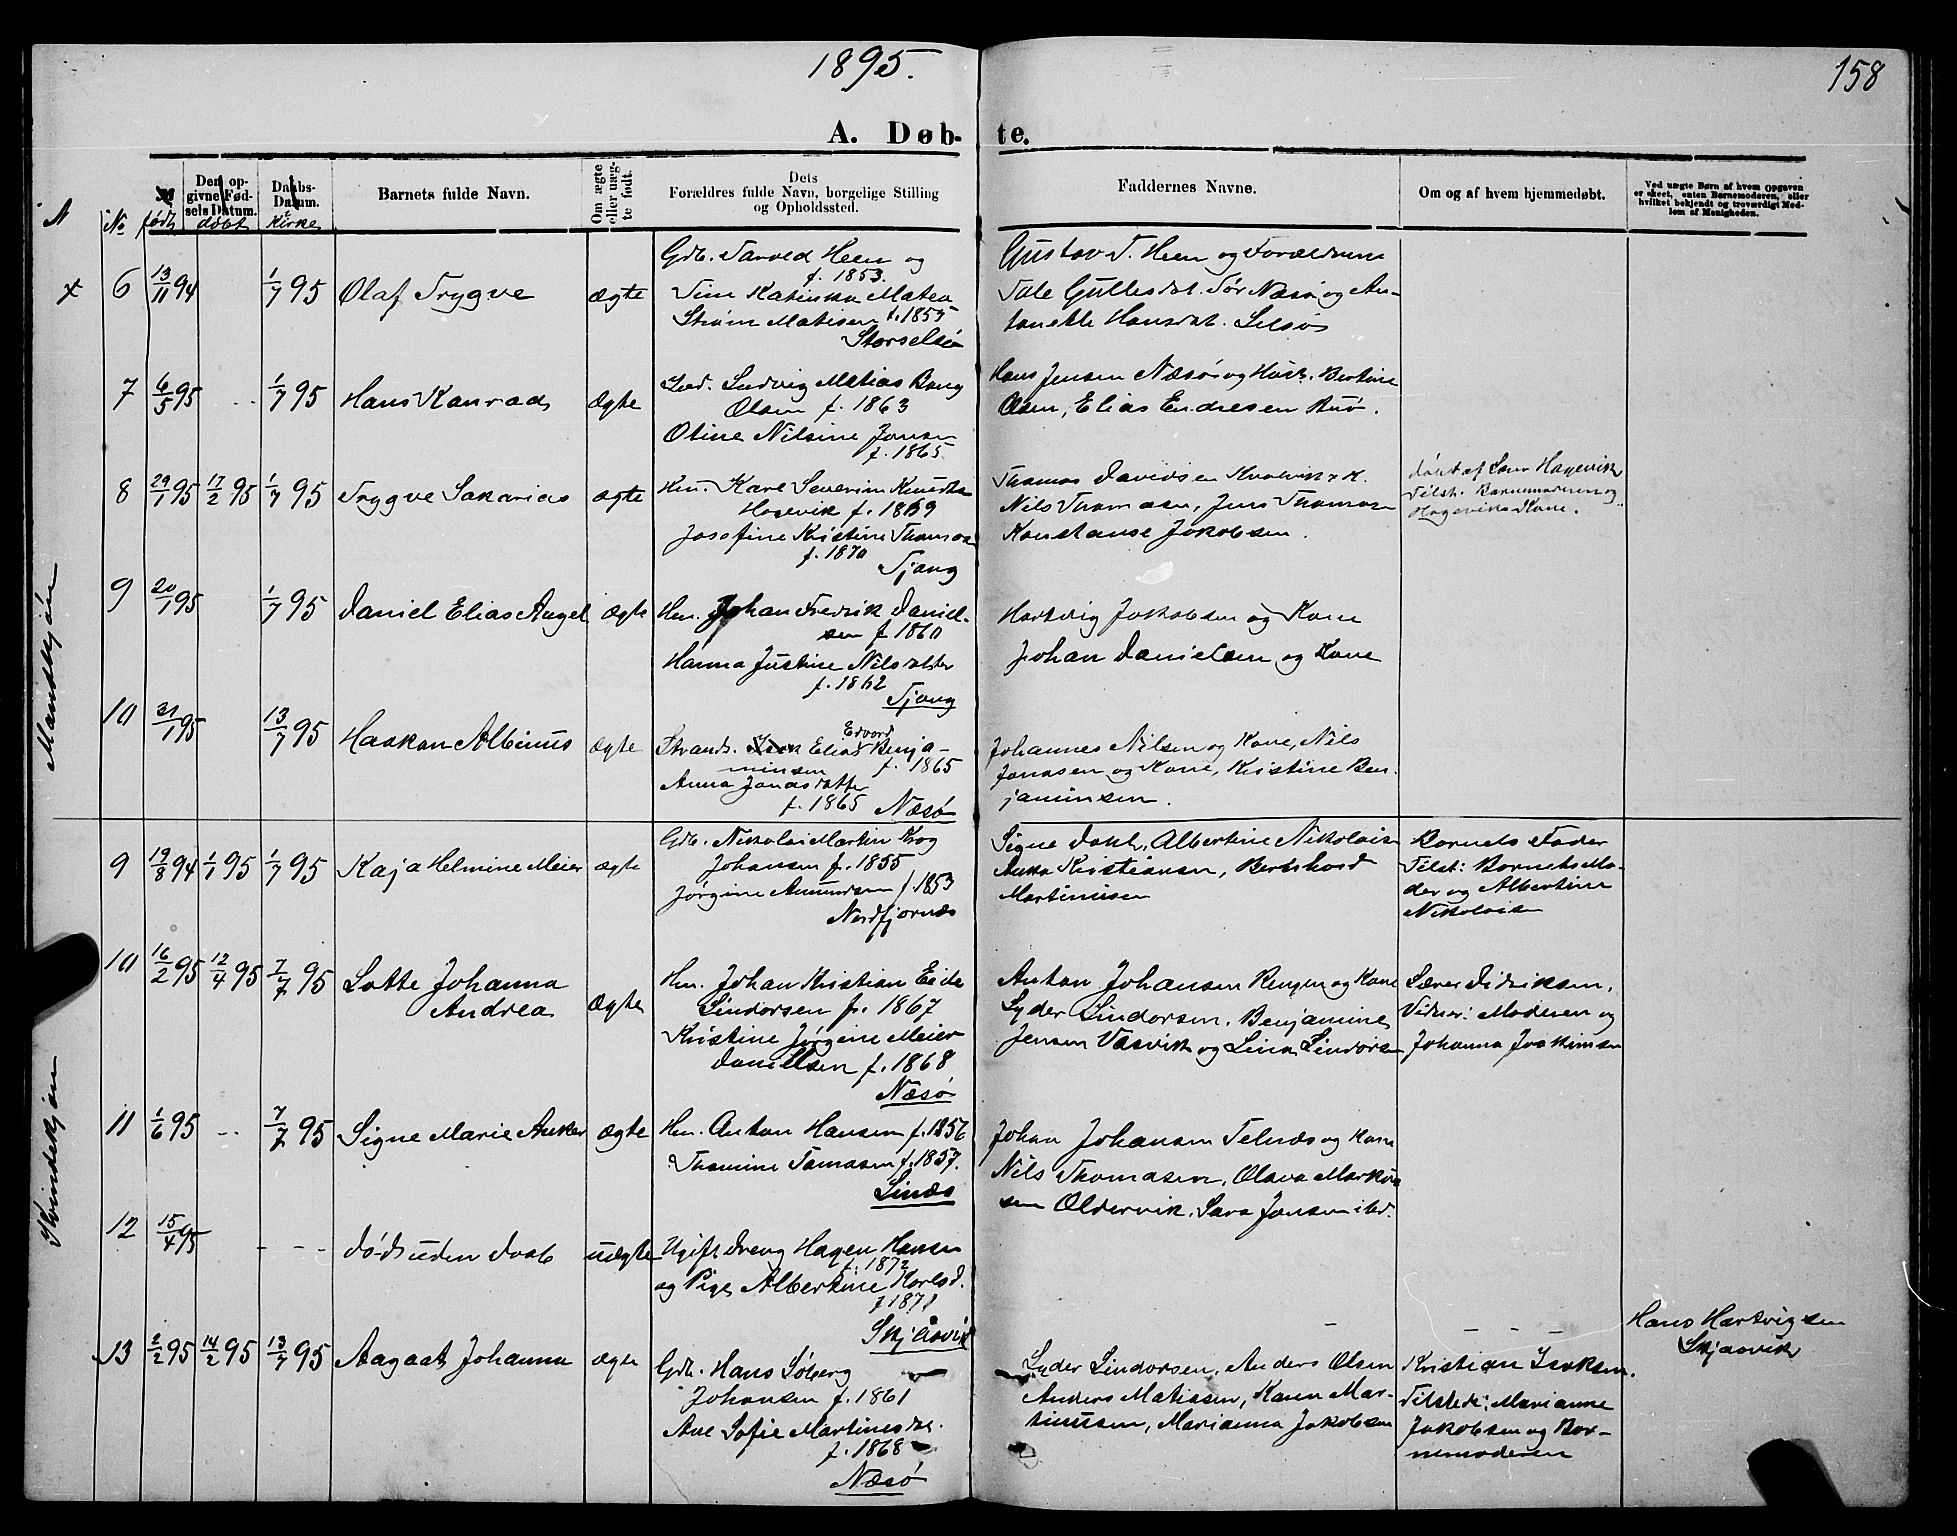 1895.
158
A. Døb- te.
Den op-
givne Fød-
sels Datum.
Daabs-
Datum.
Barnets fulde Navn.
Om ægte
eller uæg-
te født.
Dets
Forældres fulde Navn, borgelige Stilling
og Opholdssted.
Faddernes Navne.
Om og af hvem hjemmedøbt.
Ved uægte Børn af hvem Opgaven
er skeet, enten Børnemoderen, eller
hvilket bekjendt og troværdigt Med-
lem af Menigheden.
No født døbt i Kirke
Mandkjøn
6 13/11 94 1/7 95 Olaf Trygve ægte
Gdb. Tarved Heen og
f. 1853
Katinka Matea
Strøm Matisen f. 1855
Storselsø
Gustav T. Heen og Forældrene
Tale Gullesdat. Tør Næsø og An-
tonette Hansdat. Selsøs
7 6/5 95 - - 1/7 95 Hans Konrad ægte
Ludvig Matias Bang
Olsen f. 1863
Otine Nilsine Jonsen
f. 1865
Hans Jensen Næsø og Hust. Bertine
Olsen, Elias Endresen Buø.
8 29/1 95 17/2 95 1/7 95 Trygve Sakarias ægte
Hm. Kare Severin Knudsen
Hagevik f. 1869
Josefine Kristine Thomsen
f. 1870
Tjong
Thomas Davidsen
Nils Thomasen, Jens Thomasen
Konstanse Jakobsen.
døbt af Hagevik
Tilst. Barnemoderen og
Hageviks Kone.
9 20/1 95 1/7 95 Daniel Elias Angel ægte
Hm. Johan Fredrik Daniel-
sen f 1860
Hanna Justine Nilsdatter
f. 1862
Tjong
Hartvig Jakobsen og Kone
Johan Danielsen og Kone
10 31/1 95 13/7 95 Haakon Albinus ægte
Strands. Elias Edvard Benja-
minsen f. 1865
Anna Jonasdatter
f. 1865 Næsø
Johannes Nilsen og Kone, Nils
Jonasen og Kone, Kristine Ben-
jaminsen.
Kvindekjøn
9 19/8 94 1/1 95 1/7 95 Kaja Helmine Meier ægte
Gdb. Nikolai Martin Krog
Johansen f. 1855
Jørgine Amundsen f. 1853
Nordfjornæs
Signe Dahl, Albertine Nikolaisen
Anna Kristiansen, Bernhard
Martinusen
Barnets Fader
Tilst: Barnets Mo-
der og Albertine
Nikolaisen
10 16/2 95 12/4 95 7/7 95 Lotte Johanna
Andrea ægte
Hm. Johan Kristian Eide
Lindorsen f. 1867
Kristine Jørgine Meier
Daniellsen f. 1868
Næsø
Anton Johansen Rengen og Kone
Lyder Lindorsen, Benjamine
Jensen Vasvik og Lina Lindorsen
Lærer Didriksen,
Vidner: Moderen og
Johanna Joakimsen
11 1/6 95 - - 7/7 95 Signe Marie Anker ægte
Hm. Anton Hansen f. 1856
Thomine Tomasen f. 1857.
Linæs
Johan Johansen Telnæs og Kone
Nils Thomasen, Olava Markus-
sen Oldervik, Sara Jonsen ibd.
12 15/4 95 - - - død uden Daab uægte
Ugift Dreng Hagen Hansen
f. 1872
og Pige Albertine Karlsd.
f 1871
Skjåsvik
- - - -
Hans Hartvigsen
Skjaasvik
13 2/2 95 14/2 95 13/7 95 Aagaat Johanna ægte
Gdb. Hans Søberg
Johansen f. 1861
Ane Sofie Martinesdat.
f. 1868
Næsø
Lyder Lindorsen, Anders Olsen
Anders Matissen, Karen Mar-
tinussen, Marianna Jakobsen
Kristian Isaksen.
Tilstede: Marianne
Jakobsen og Bar-
nemoderen